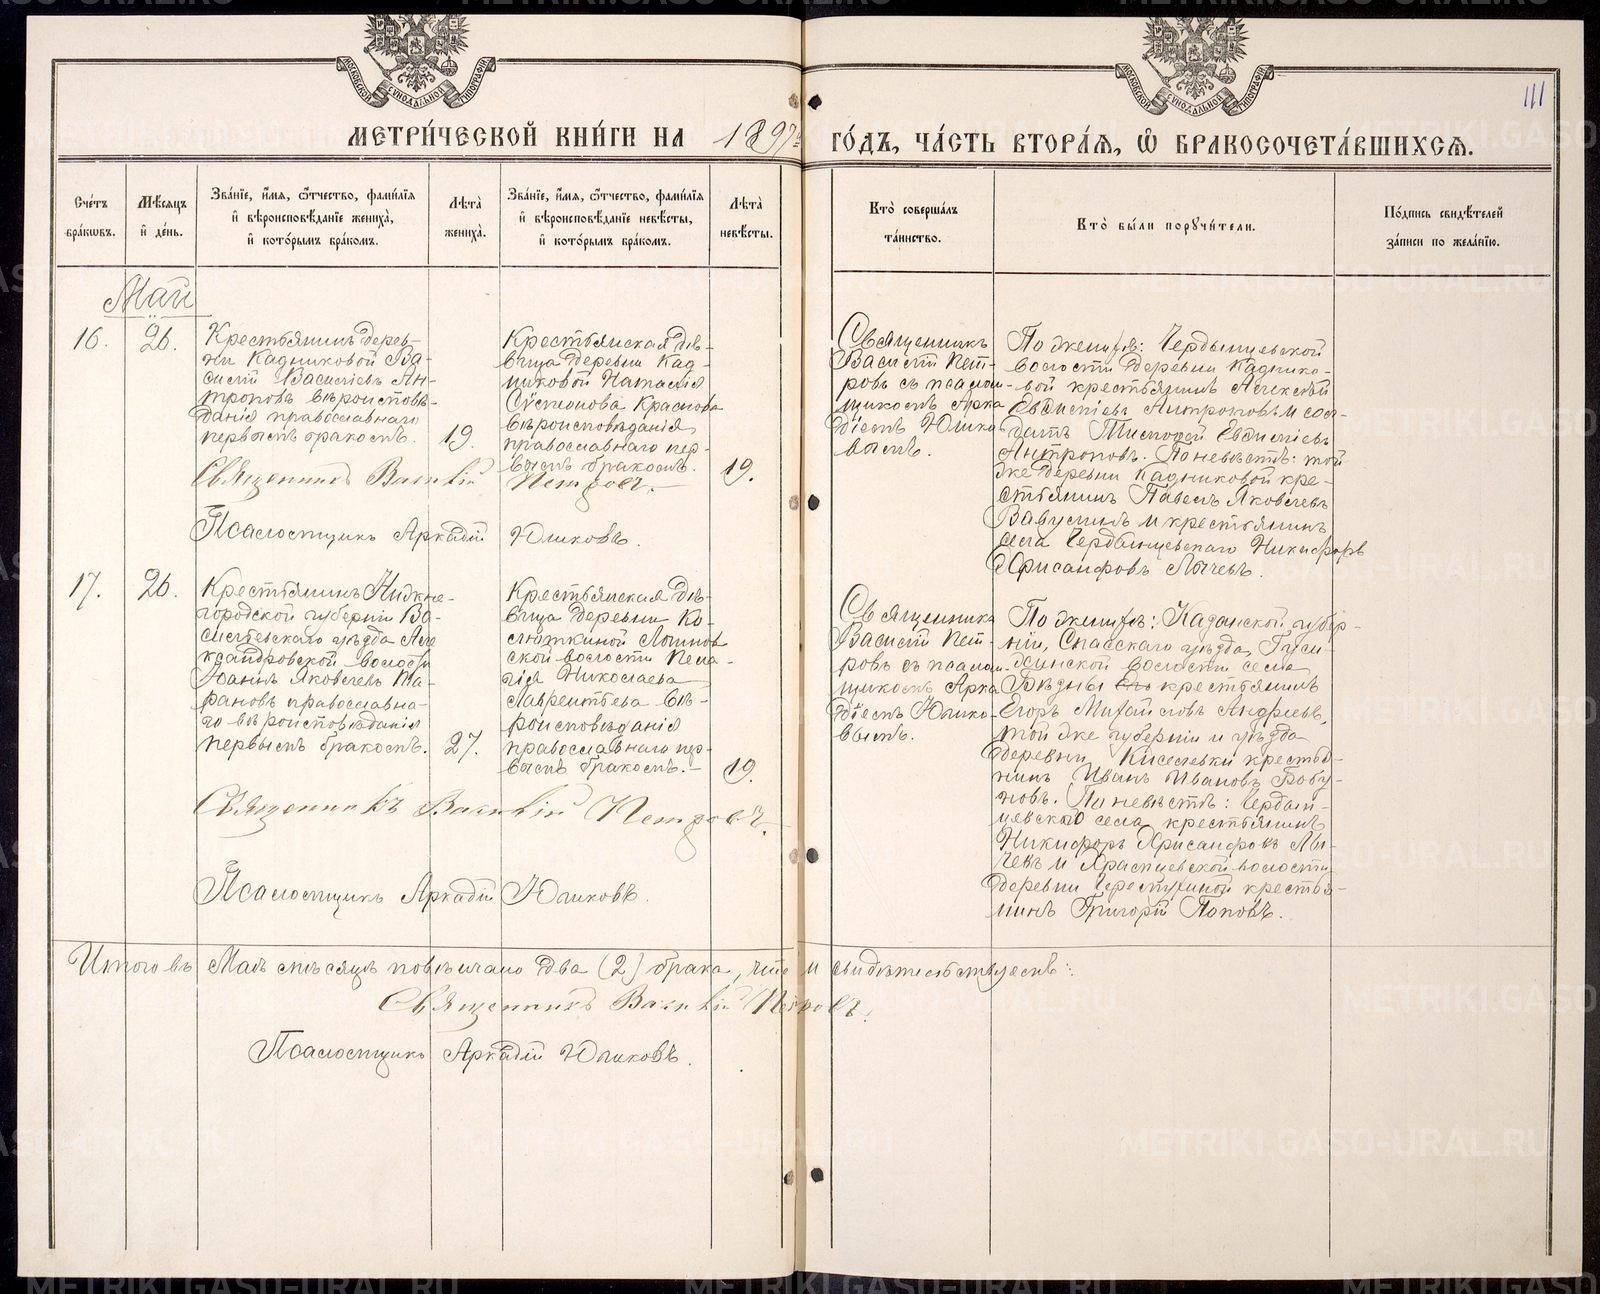 МОСКОВСКОЙ СѴНОДАЛЬНОЙ ТИПОГРАФІИ
МОСКОВСКОЙ СѴНОДАЛЬНОЙ ТИПОГРАФІИ
111
МЕТРИ́ЧЕСКОЙ КНИ́ГИ НА 1897 ГО́ДЪ, ЧА́СТЬ ВТОРА́Я, Ѽ БРАКОСОЧЕТА́ВШИХСѦ.
Сче́тъ
бра́кѡвъ.
Мѣ́сяцъ
и҆ де́нь.
Зва́нїе, и҆́мѧ, ѻ҆́тчество, фами́лїѧ
и҆ вѣроисповѣ́данїе жениха̀,
и҆ кото́рымъ бра́комъ.
Лѣта̀
жениха̀.
Зва́нїе, и҆́мѧ, ѻ҆́тчество, фами́лїѧ
и҆ вѣроисповѣ́данїе невѣ́сты,
и҆ кото́рымъ бра́комъ.
Лѣта̀
невѣ́сты.
Кто̀ соверша́лъ
та́инство.
Кто̀ бы́ли порꙋчи́тели.
По́дпись свидѣ́телей
за́писи по жела́нїю.
Май
16.
26.
Крестьянинъ дерев-
ни Кадниковой Ва-
силій Васильевъ Ан-
троповъ вѣроисповѣ-
данія православнаго
первымъ бракомъ.
19.
Крестьянская дѣ-
вица деревни Кад-
никовой Наталія
Сѵмеонова Краснова
вѣроисповѣданія
православнаго пер-
вымъ бракомъ.
19.
Священникъ
Василій Пет-
ровъ съ псалом-
щикомъ Арка
діемъ Юшко-
вымъ.
По женихѣ: Чердынцевской
волости деревни Каднико-
вой крестьянинъ Алексѣй
Евдиміевъ Антроповъ и сол-
датъ Тимофей Евдиміевъ
Антроповъ. По невѣстѣ: той
же деревни Кадниковой кре-
стьянинъ Павелъ Яковлевъ
и крестьянинъ
села Чердынцевскаго Никифоръ
Хрисанфовъ Лычевъ.
Священникъ Василій Петровъ.
Псаломщикъ Аркадій Юшковъ.
17.
26.
Крестьянинъ Нижне-
городской губерніи Ва-
сильевскаго уѣзда Але
ксандровской волости
Іоаннъ Яковлевъ Та-
рановъ православна-
го вѣроисповѣданія
первымъ бракомъ.
27.
Крестьянская дѣ-
вица деревни Ко-
сюжкиной Логинов
ской волости Пела-
гія Николаева
Лаврентьева вѣ-
роисповѣданія
православнаго пер-
вымъ бракомъ.-
19.
Священникъ
Василій Пет-
ровъ съ псалом-
щикомъ Арка
діемъ Юшко-
вымъ.
По женихѣ: Казанской губер-
ніи, Спасскаго уѣзда,
волости села
крестьянинъ
Егоръ Михайловъ Андреевъ,
той же губерніи и уѣзда
деревни Киселевки крестья-
нинъ Иванъ Ивановъ Бобу-
новъ. По невѣстѣ: Чердын-
цевского села крестьянинъ
Никифоръ Хрисанфовъ Лы-
чевъ и волости
деревни крестья-
нинъ Григорій Поповъ.
Священникъ Василій Петровъ.
Псаломщикъ Аркадій Юшковъ.
Итого въ Маѣ мѣсяцѣ повѣнчано два (2) брака, что и свидѣтельствуемъ:
Священникъ Василій Петровъ.
Псаломщикъ Аркадій Юшковъ.
METRIKI.GASO-URAL.RU